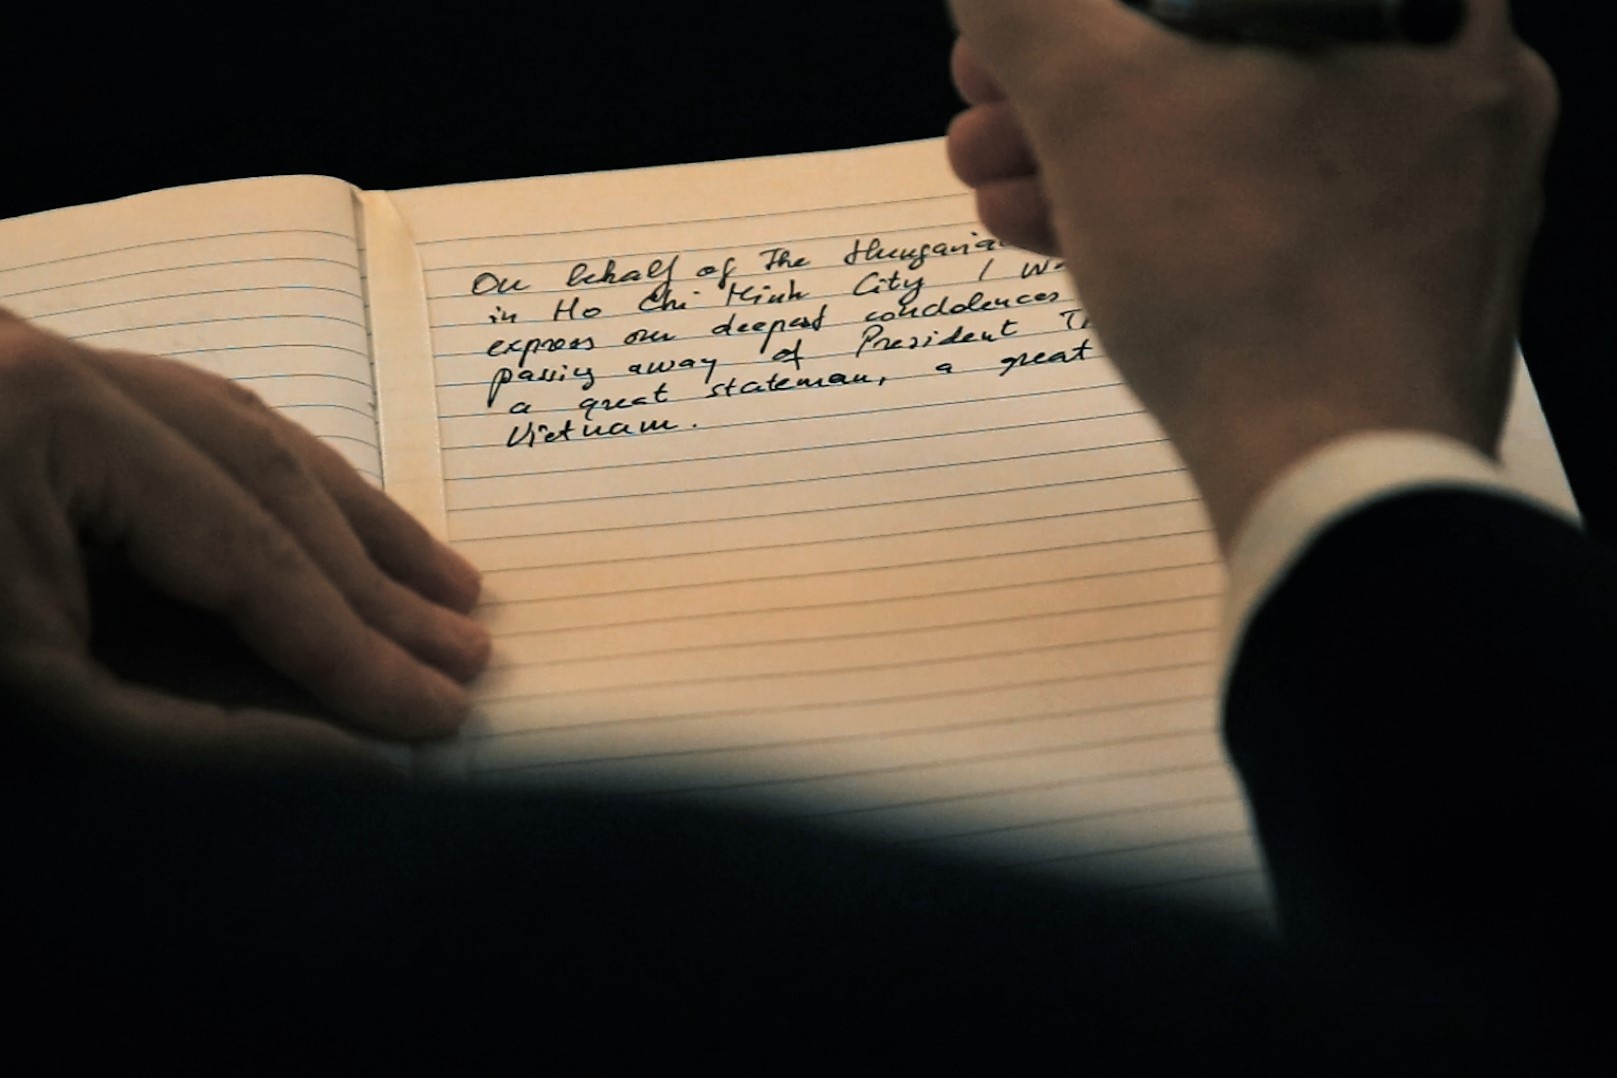 On behalf of The Hungaria
in Ho Chi Minh City I w
express our deepest condolences
passing away of President T
a great stateman, a great
Vietnam.